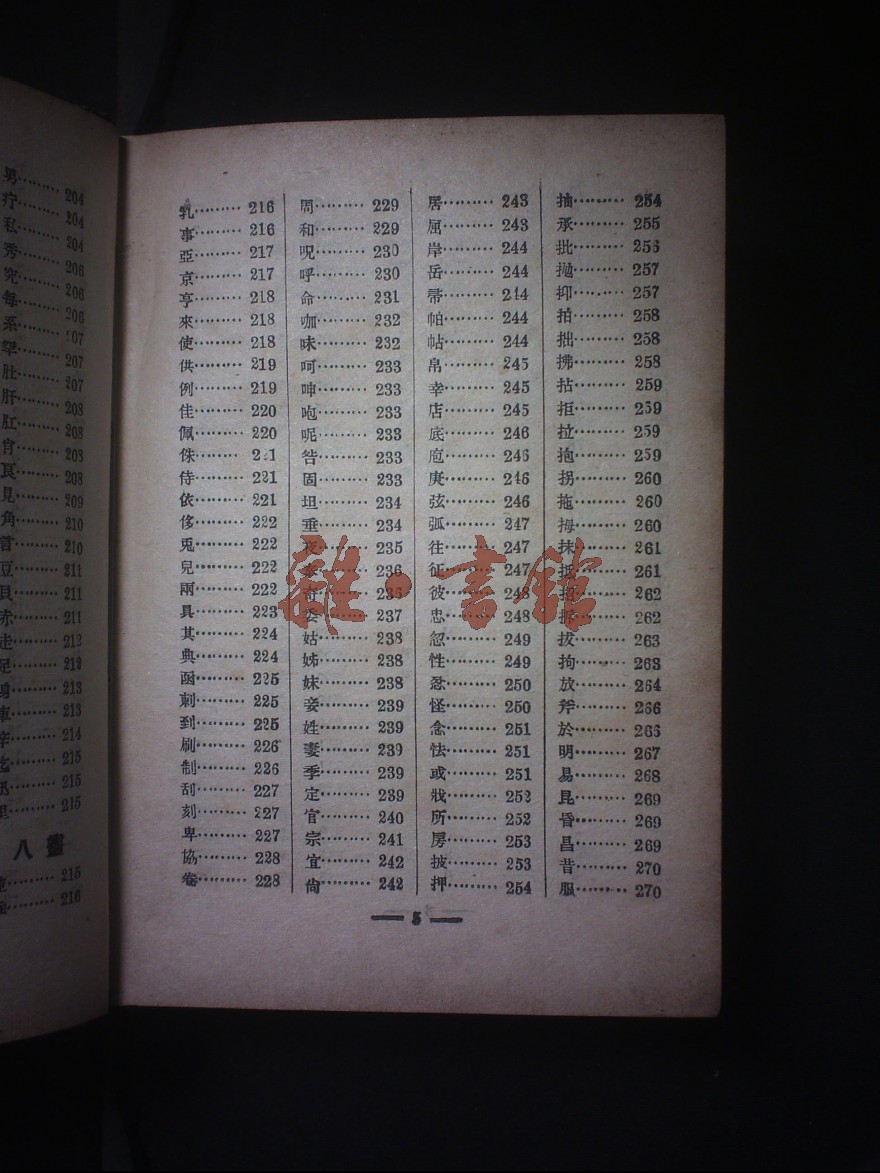 男……… 204
疗……… 204
私……… 204
秀……… 206
究……… 206
每……… 206
系……… 207
罕……… 207
肚……… 207
肝……… 208
肛……… 208
肓……… 208
艮……… 208
見……… 209
角……… 210
言……… 210
豆……… 211
貝……… 211
赤……… 211
走……… 212
足……… 212
身……… 213
車……… 213
辛……… 214
215
215
里……… 215
八畫
215
216
乳……… 216
事……… 216
亞……… 217
京……… 217
享……… 218
來……… 218
使……… 218
供……… 219
例……… 219
佳……… 220
佩……… 220
侏……… 221
侍……… 221
依……… 221
侈……… 222
兎……… 222
兒……… 222
兩……… 222
具……… 223
其……… 224
典……… 224
函……… 225
刺……… 225
到……… 225
刷……… 226
制……… 226
刮……… 227
刻……… 227
卑……… 227
協……… 228
卷……… 228
周……… 229
和……… 229
呪……… 230
呼……… 230
命……… 231
咖……… 232
味……… 232
呵……… 233
呻……… 233
咆……… 233
呢……… 233
咎……… 233
固……… 233
坦……… 234
垂……… 234
夜……… 235
236
奇……… 236
委……… 237
姑……… 238
姊……… 238
妹……… 238
妾……… 239
姓……… 239
妻……… 239
季……… 239
定……… 239
官……… 240
宗……… 241
宜……… 242
尙……… 242
居……… 243
屈……… 243
岸……… 244
岳……… 244
帚……… 244
帕……… 244
帖……… 244
帛……… 245
幸……… 245
店……… 245
底……… 246
庖……… 246
庚……… 246
弦……… 246
弧……… 247
往……… 247
征……… 247
彼……… 248
忠……… 248
忽……… 249
性……… 249
忿……… 250
怪……… 250
念……… 251
怯……… 251
或……… 251
戕……… 252
所……… 252
房……… 253
披……… 253
押……… 254
抽……… 254
承……… 255
批……… 256
拋……… 257
抑……… 257
拍……… 258
拙……… 258
拂……… 258
拈……… 259
拒……… 259
拉……… 259
抱……… 259
拐……… 260
拖……… 260
拇……… 260
抹……… 261
抵……… 261
262
262
拔……… 263
拘……… 263
放……… 264
斧……… 266
於……… 266
明……… 267
易……… 268
昆……… 269
昏……… 269
昌……… 269
昔……… 270
服……… 270
— 5 —
雜·書館